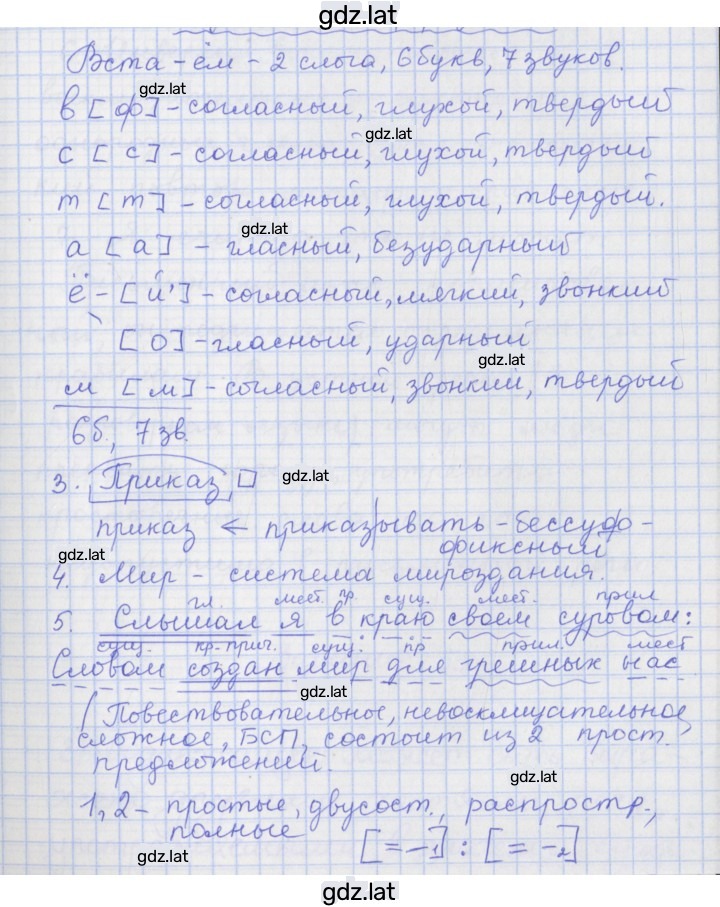 gdz.lat
Вста-ём - 2 слога, 6 букв, 7 звуков.
gdz.lat
в [ф] - согласный, глухой, твердый
gdz.lat
с [с] - согласный, глухой, твердый
т [т] - согласный, глухой, твердый.
gdz.lat
а [а] - гласный, безударный
ё - [й'] - согласный, мягкий, звонкий
[о] - гласный, ударный
gdz.lat
м [м] - согласный, звонкий, твердый
6б., 7 зв.
3. Приказ gdz.lat
приказ ← приказывать - бессуф-
фиксный
gdz.lat
4. Мир - система мироздания.
гл. мест. пр сущ. мест. прил
5. Слышал я в краю своем суровом:
сущ. кр. прич. сущ. пр прил. мест
Словом создан мир для грешных нас
gdz.lat
(Повествовательное, невосклицательное,
сложное, БСП, состоит из 2 прост.
предложений.
gdz.lat
1,2 - простые, двусост., распростр.,
полные
[= -1] : [= -2]
gdz.lat
gdz.lat